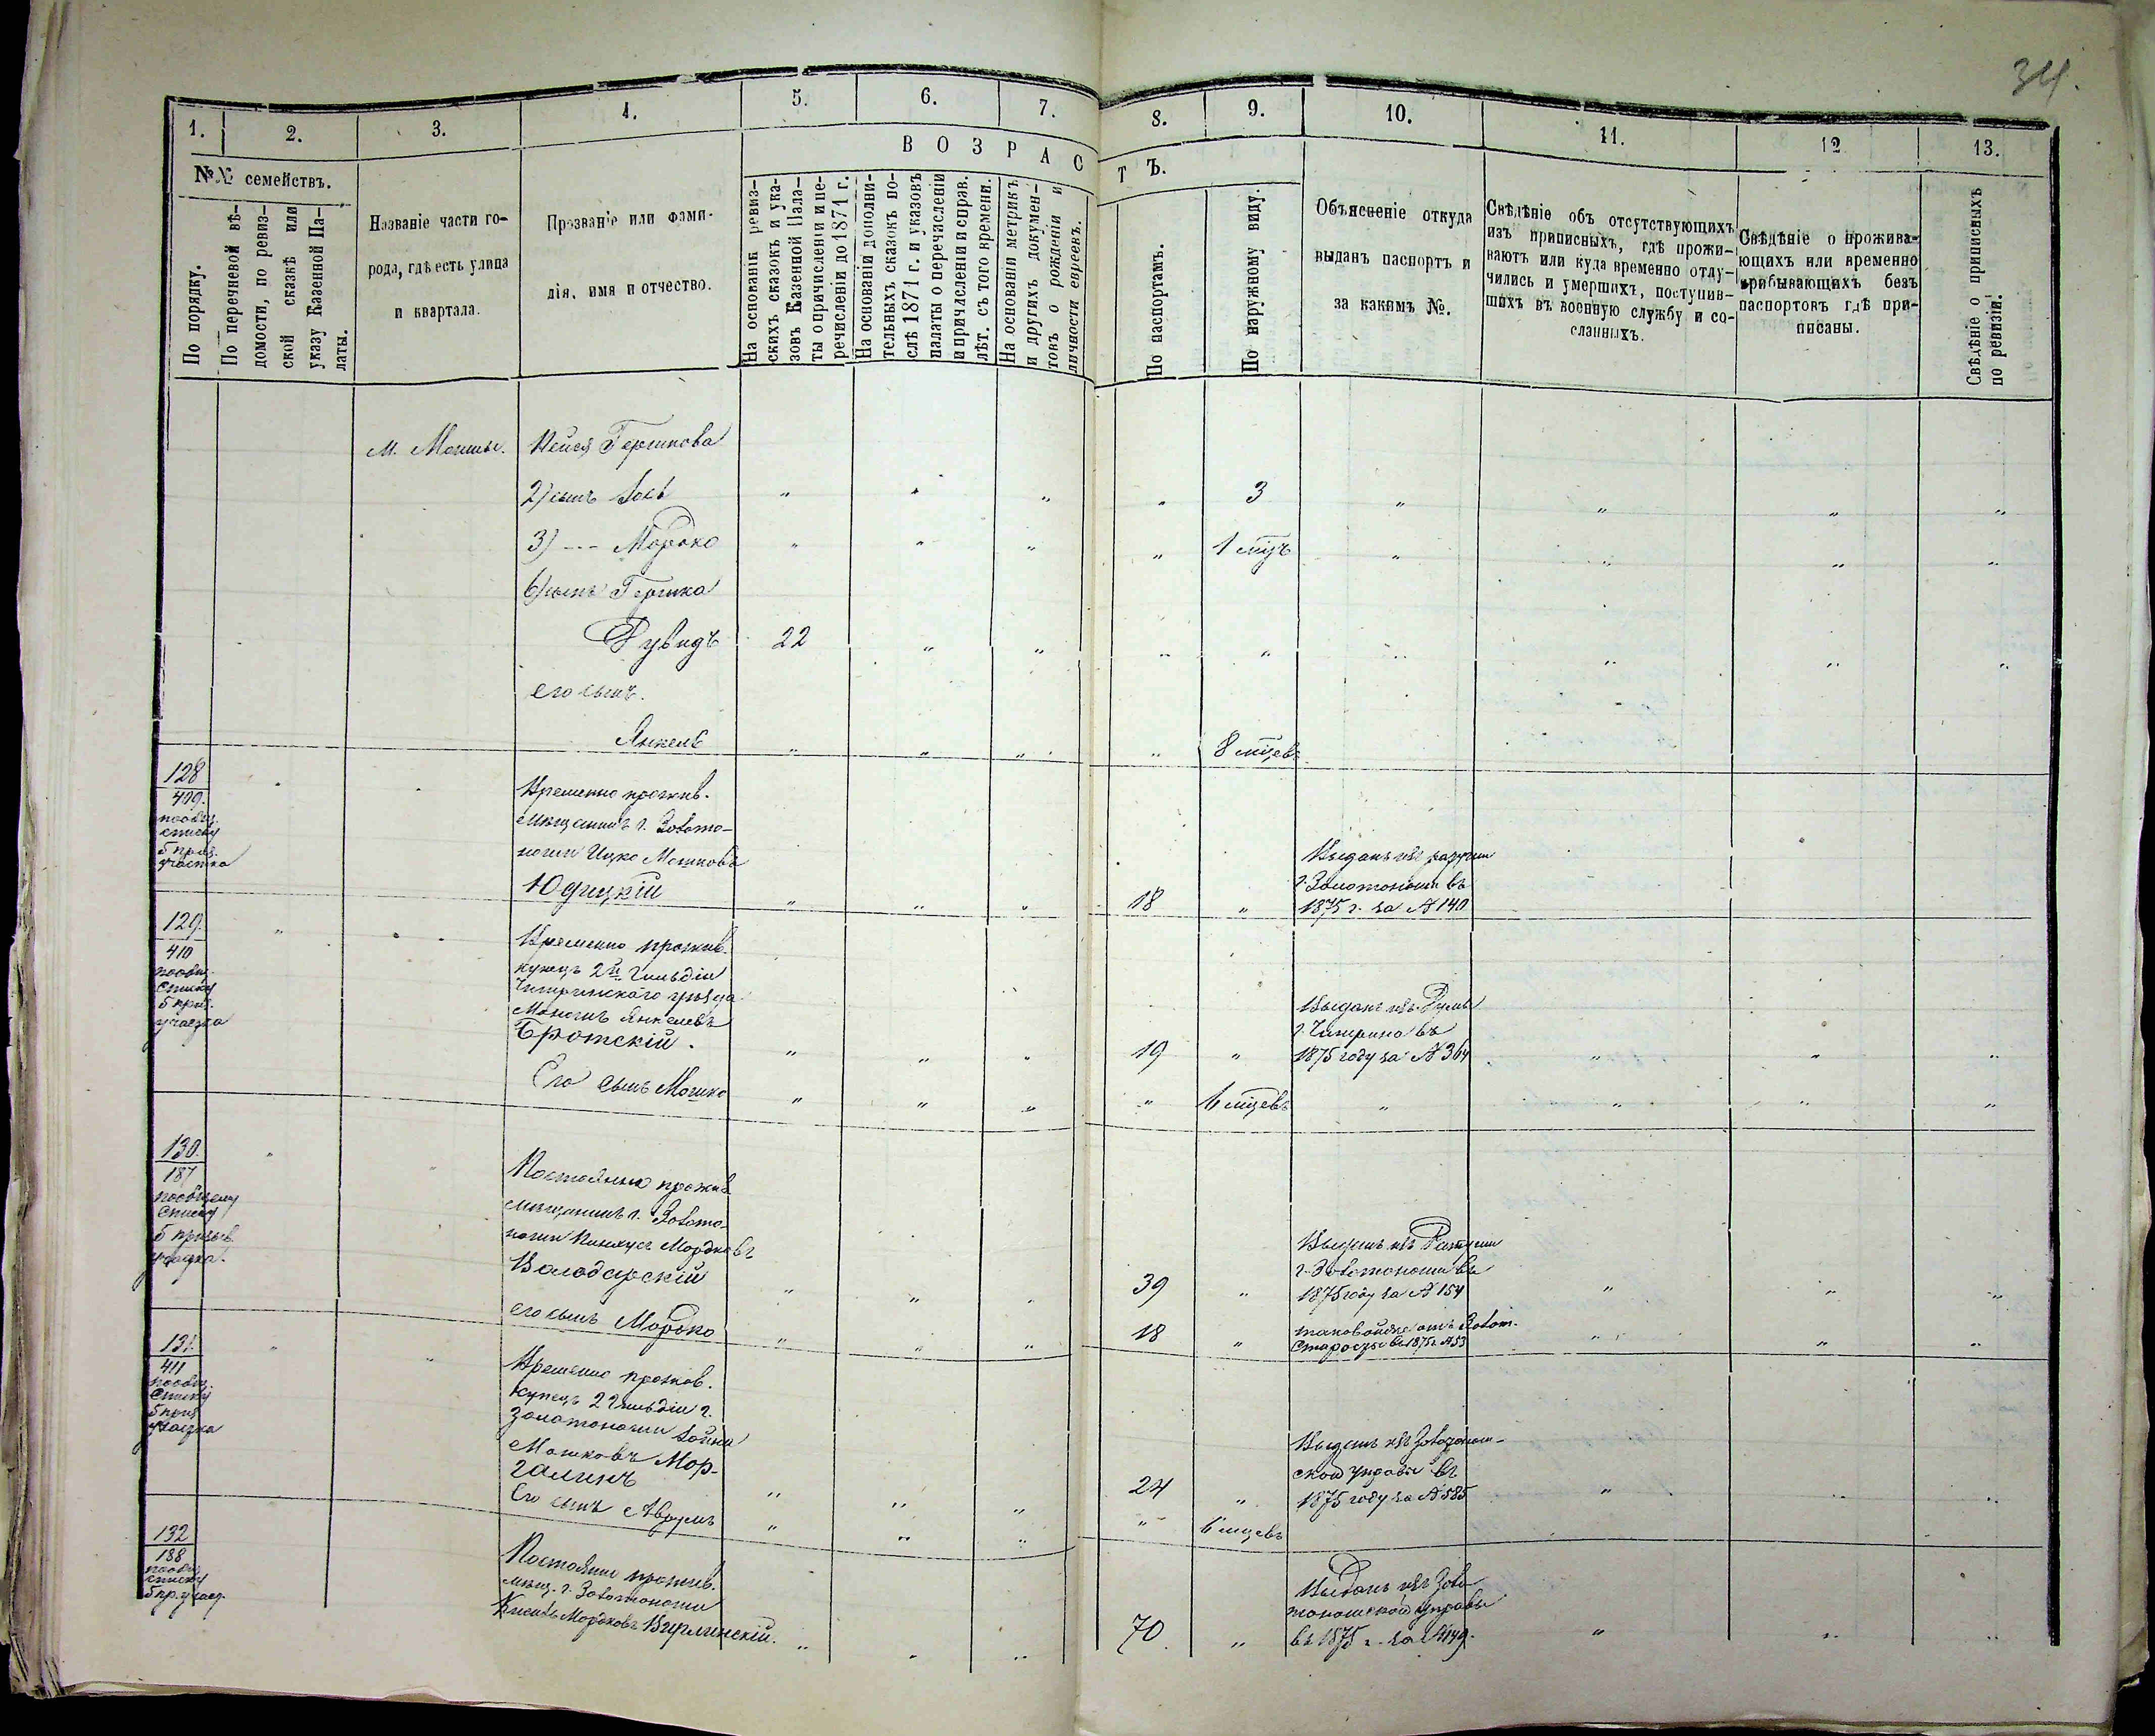 34.
1. 2. 3. 4. 5. 6. 7. 8. 9. 10. 11. 12 13.
№№ семействъ.
По порядку.
По перечневой вѣ-
домости, по ревиз-
ской сказкѣ или
указу Казенной Па-
латы.
Названіе части го-
рода, гдѣ есть улица
и квартала.
Прозваніе или фами-
лія, имя и отчество.
ВОЗРАСТЪ.
На основаніи ревиз-
скихъ сказокъ и ука-
зовъ Казенной Пала-
ты о причисленіи и пе-
речисленіи до 1871 г.
На основаніи дополни-
тельныхъ сказокъ по-
слѣ 1871 г. и указовъ
палаты о перечисленіи
и причисленіи и справ.
лѣт. съ того времени.
На основаніи метрикъ
и другихъ докумен-
товъ о рожденіи и
личности евреевъ.
По паспортамъ.
По наружному виду.
Объясненіе откуда
выданъ паспортъ и
за какимъ №.
Свѣдѣніе объ отсутствующихъ
изъ приписныхъ, гдѣ прожи-
ваютъ или куда временно отлу-
чились и умершихъ, поступив-
шихъ въ военную службу и со-
сланныхъ.
Свѣдѣніе о прожива-
ющихъ или временно
прибывающихъ безъ
паспортовъ гдѣ при-
писаны.
Свѣдѣніе о приписныхъ
по ревизіи.
Гершкова
2) сынъ 3
3) --- Мордко 1 мѣсъ
б) сынъ Гершка
Рувидъ 22
его сынъ.
Янкель 8 мѣсцевъ
128
409.
по общ.
списку
5 приз.
участка
Временно прожив.
мѣщанинъ г. Золото-
ноши Ицко Мошковъ
Юдицкій 18
Выданъ изъ ратуши
г. Золотоноши въ
1875 г. за № 140
129.
410
по общ.
списку
5 приз.
участка
Временно прожив.
купецъ 2й гильдіи
Чигринскаго уѣзда
Янкелевъ
Бротскій. 19
Выданъ изъ Думы
г. Чигрина въ
1875 году за № 364
Его сынъ Мошко 6 мѣсцевъ
130.
187
по общему
списку
5 призыв.
участка.
Постоянно прожив
мѣщанинъ г. Золото-
ноши Пинхусъ Мордковъ
Володарскій 39
Выданъ изъ Ратуши
г. Золотоноши въ
1875 году за № 154
его сынъ Мордко 18
таковой же отъ Золот.
Старосты въ 1875 г. № 53
131.
411
по общ.
списку
5 приз
участка
Временно прожив.
купецъ 2 гильдіи г.
Золотоноши
Мошковъ Мор-
галинъ 24
Выданъ изъ Золотонош-
ской управы въ
1875 году за № 585
Его сынъ Аврумъ 6 мѣсцевъ
132
188
по общ.
списку
5 пр. участ.
Постоянно прожив.
мѣщ. г. Золотоноши
Мордковъ 70.
Выданъ изъ Золо-
тоношской управы
въ 1875 г. за № 149.